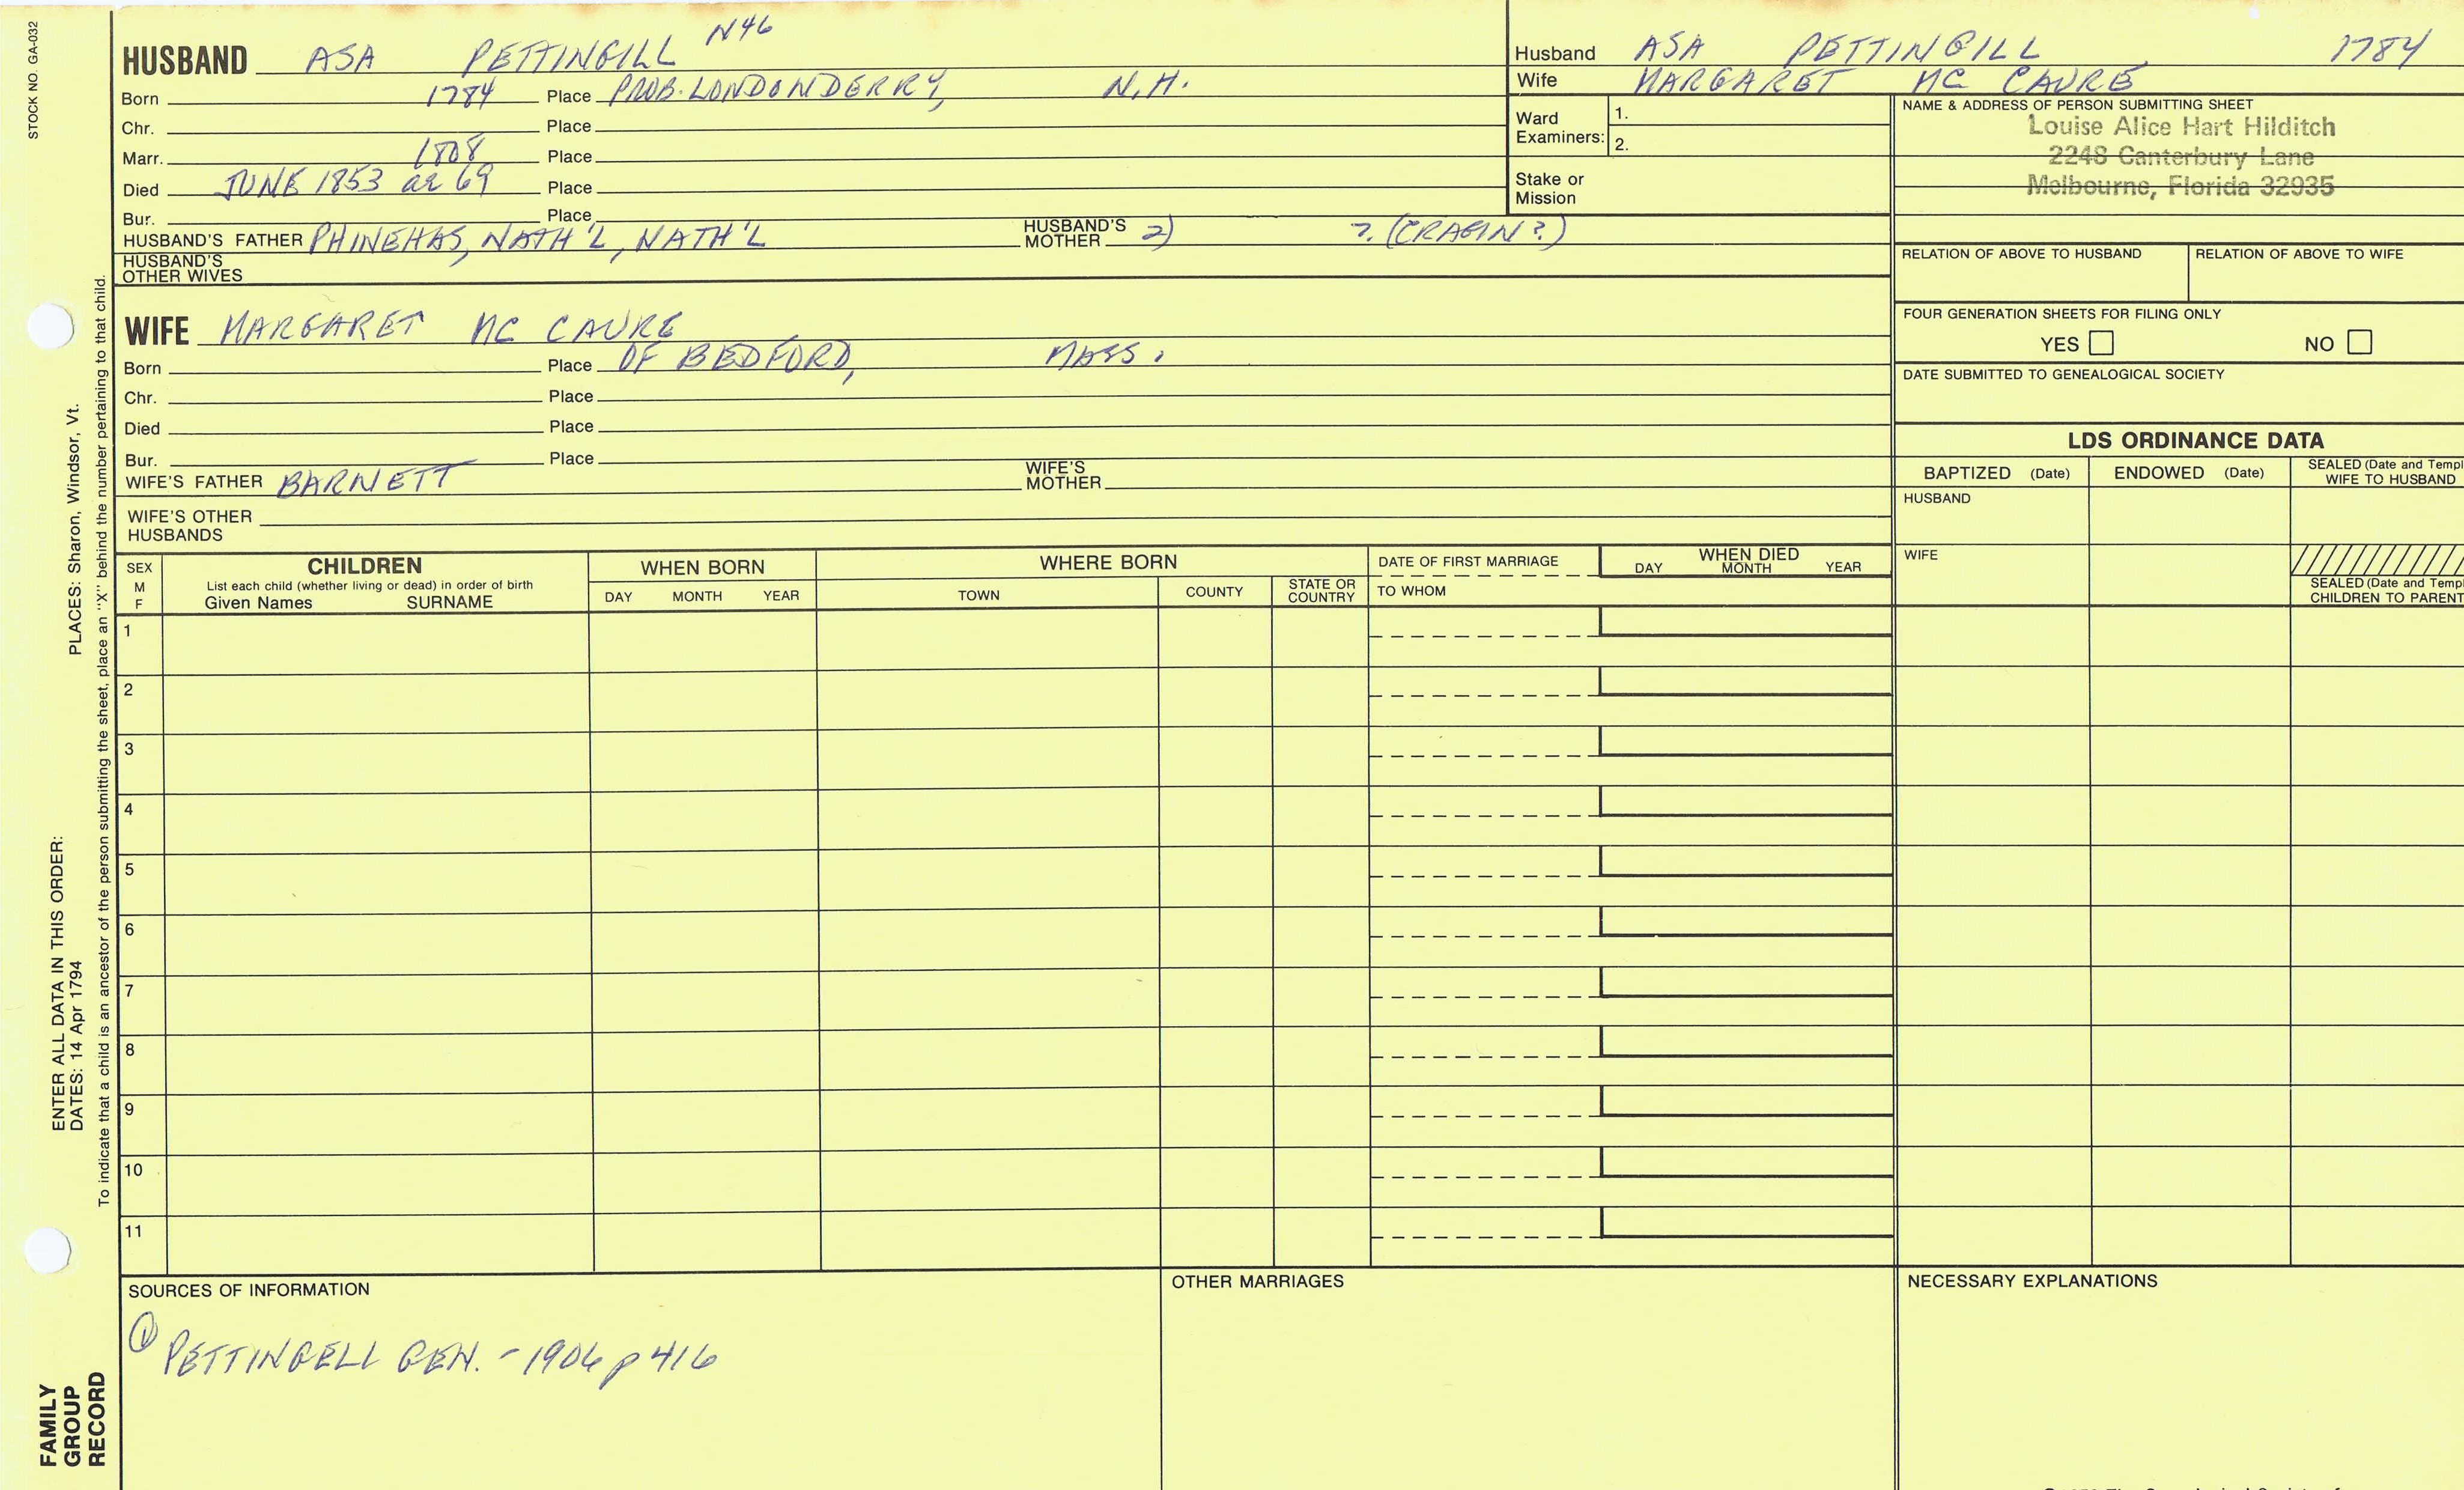 STOCK NO. GA-032
HUSBAND ASA PETTINGILL N46
Born 1784 Place PROB. LONDONDERRY, N.H.
Chr. Place
Marr. 1808 Place
Died JUNE 1853 ae 69 Place
Bur. Place
HUSBAND'S FATHER PHINEHAS, NATH'L, NATH'L HUSBAND'S MOTHER 2) ? (CRAGIN?)
HUSBAND'S OTHER WIVES
WIFE MARGARET MC CAURE
Born Place OF BEDFORD, MASS.
Chr. Place
Died Place
Bur. Place
WIFE'S FATHER BARNETT WIFE'S MOTHER
WIFE'S OTHER HUSBANDS
Husband ASA PETTINGILL 1784
Wife MARGARET MC CAURE
Ward Examiners: 1.
2.
Stake or Mission
NAME & ADDRESS OF PERSON SUBMITTING SHEET
Louise Alice Hart Hilditch
2248 Canterbury Lane
Melbourne, Florida 32935
RELATION OF ABOVE TO HUSBAND RELATION OF ABOVE TO WIFE
FOUR GENERATION SHEETS FOR FILING ONLY
YES NO
DATE SUBMITTED TO GENEALOGICAL SOCIETY
LDS ORDINANCE DATA
BAPTIZED (Date) ENDOWED (Date) SEALED (Date and Templ
WIFE TO HUSBAND
HUSBAND
WIFE
SEALED (Date and Templ
CHILDREN TO PARENT
SEX
M
F
CHILDREN
List each child (whether living or dead) in order of birth
Given Names SURNAME
WHEN BORN
DAY MONTH YEAR
WHERE BORN
TOWN COUNTY STATE OR COUNTRY
DATE OF FIRST MARRIAGE
TO WHOM
WHEN DIED
DAY MONTH YEAR
1
2
3
4
5
6
7
8
9
10
11
SOURCES OF INFORMATION
① PETTINGELL GEN. - 1906 p 416
OTHER MARRIAGES
NECESSARY EXPLANATIONS
PLACES: Sharon, Windsor, Vt.
ENTER ALL DATA IN THIS ORDER:
DATES: 14 Apr 1794
To indicate that a child is an ancestor of the person submitting the sheet, place an "X" behind the number pertaining to that child.
FAMILY
GROUP
RECORD